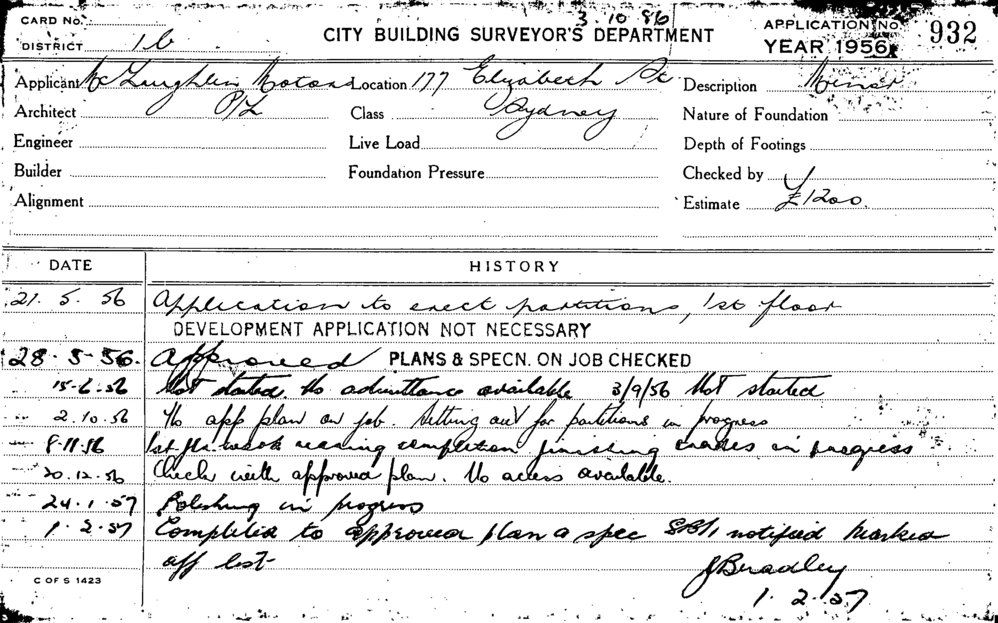 CARD No. 3.10.56
CITY BUILDING SURVEYOR'S DEPARTMENT
APPLICATION No. 932
DISTRICT 1b
YEAR 1956
Applicant McLaughlin Motors Location 177 Elizabeth St Description Minor
Architect P/L Class Sydney Nature of Foundation
Engineer Live Load Depth of Footings
Builder Foundation Pressure Checked by
Alignment Estimate £1200.
DATE HISTORY
21. 5. 56 Application to erect partitions, 1st floor
DEVELOPMENT APPLICATION NOT NECESSARY
28. 5. 56. Approved PLANS & SPECN. ON JOB CHECKED
15-6.56 Not started. No admittance available 3/9/56 Not started
2.10.56 No app plan on job. Setting out for partitions in progress
8.11.56 1st flr. work nearing completion finishing trades in progress
20.12.56 Check with approved plan. No access available.
24.1.57 Polishing in progress
1.2.57 Completed to approved plan & spec notified Marked
off list
J Bradley
1.2.57
C OF S 1423